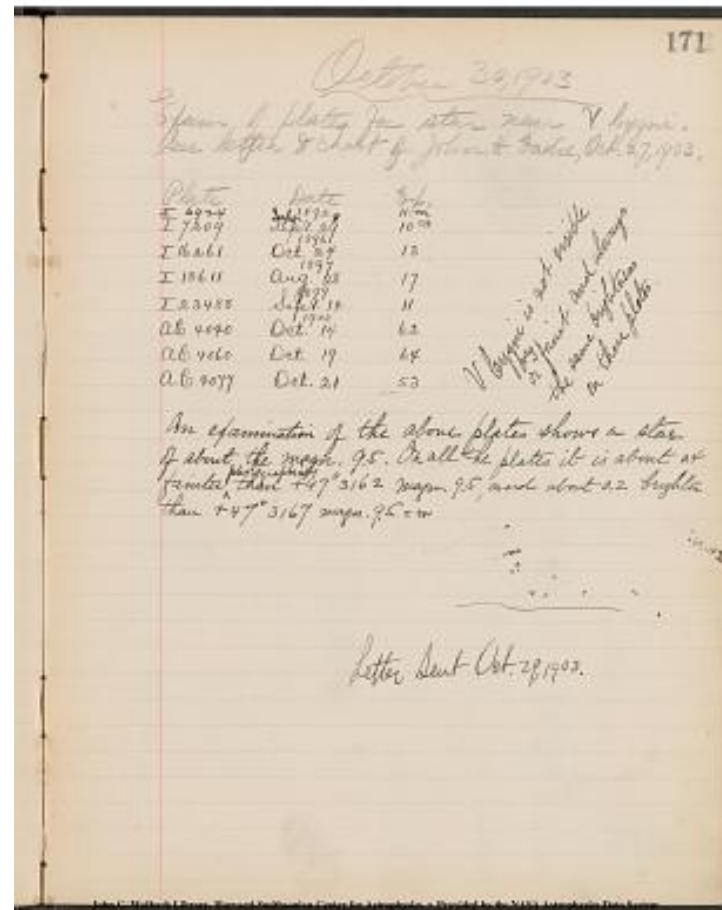 171
October 30, 1903
Exam of plates for star near V Cygni.
See letter & chart of John E. Eadie, Oct. 27, 1903.
Plate Date Exp.
I 6924 11m
I 7209 Sept 29 10m
1896
I 16261 Oct. 24 13
1897
I 18611 Aug. 17
1899
I 23455 Sept. 14 11
1903
AC 4040 Oct. 14 62
AC 4060 Oct. 19 64
AC 4077 Oct. 21 53
V Cygni is not visible
or faint and always
the same brightness
on these plates
An examination of the above plates shows a star
of about the magn. 9.5. On all the plates it is about 0.4
fainter than +47° 3162 magn. 9.5, and about 0.2 brighter
than +47° 3167 magn. 9.5
Letter Sent Oct. 29, 1903.